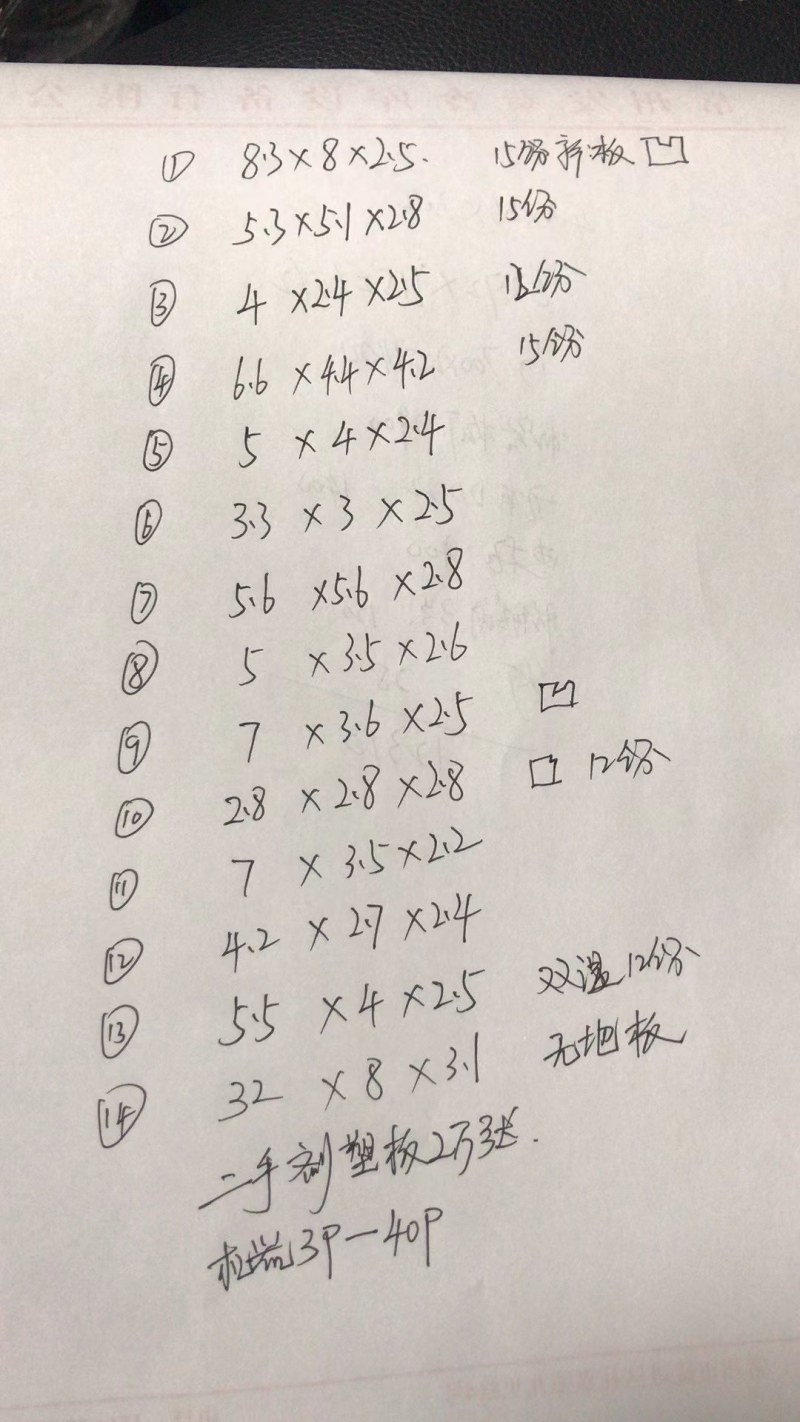 ① 8.3×8×2.5. 15份新板
② 5.3×5.1×2.8 15份
③ 4×2.4×2.5 份
④ 6.6×4.4×4.2 15份
⑤ 5×4×2.4
⑥ 3.3×3×2.5
⑦ 5.6×5.6×2.8
⑧ 5×3.5×2.6
⑨ 7×3.6×2.5
⑩ 2.8×2.8×2.8 12份
⑪ 7×3.5×2.2
⑫ 4.2×2.7×2.4
⑬ 5.5×4×2.5 双温12份
⑭ 32×8×3.1 无地板
二手 塑板2万张.
3P-40P